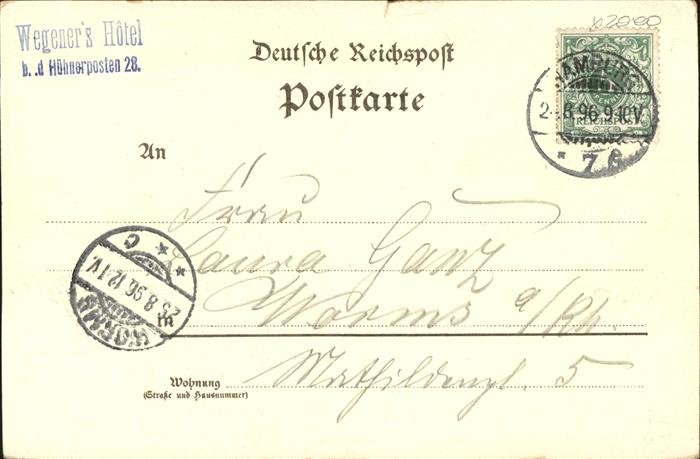 x2000
Wegener's Hôtel
b. d Hühnerposten 28.
Deutsche Reichspost
Postkarte
HAMBURG
8 96 9-10V.
* 7 
REICHSPOST
An
Frau
Laura Ganz
Worms a/Rh.
in
WORMS
25 8 96 12-1V.
* * C
Wohnung
(Straße und Hausnummer)
5